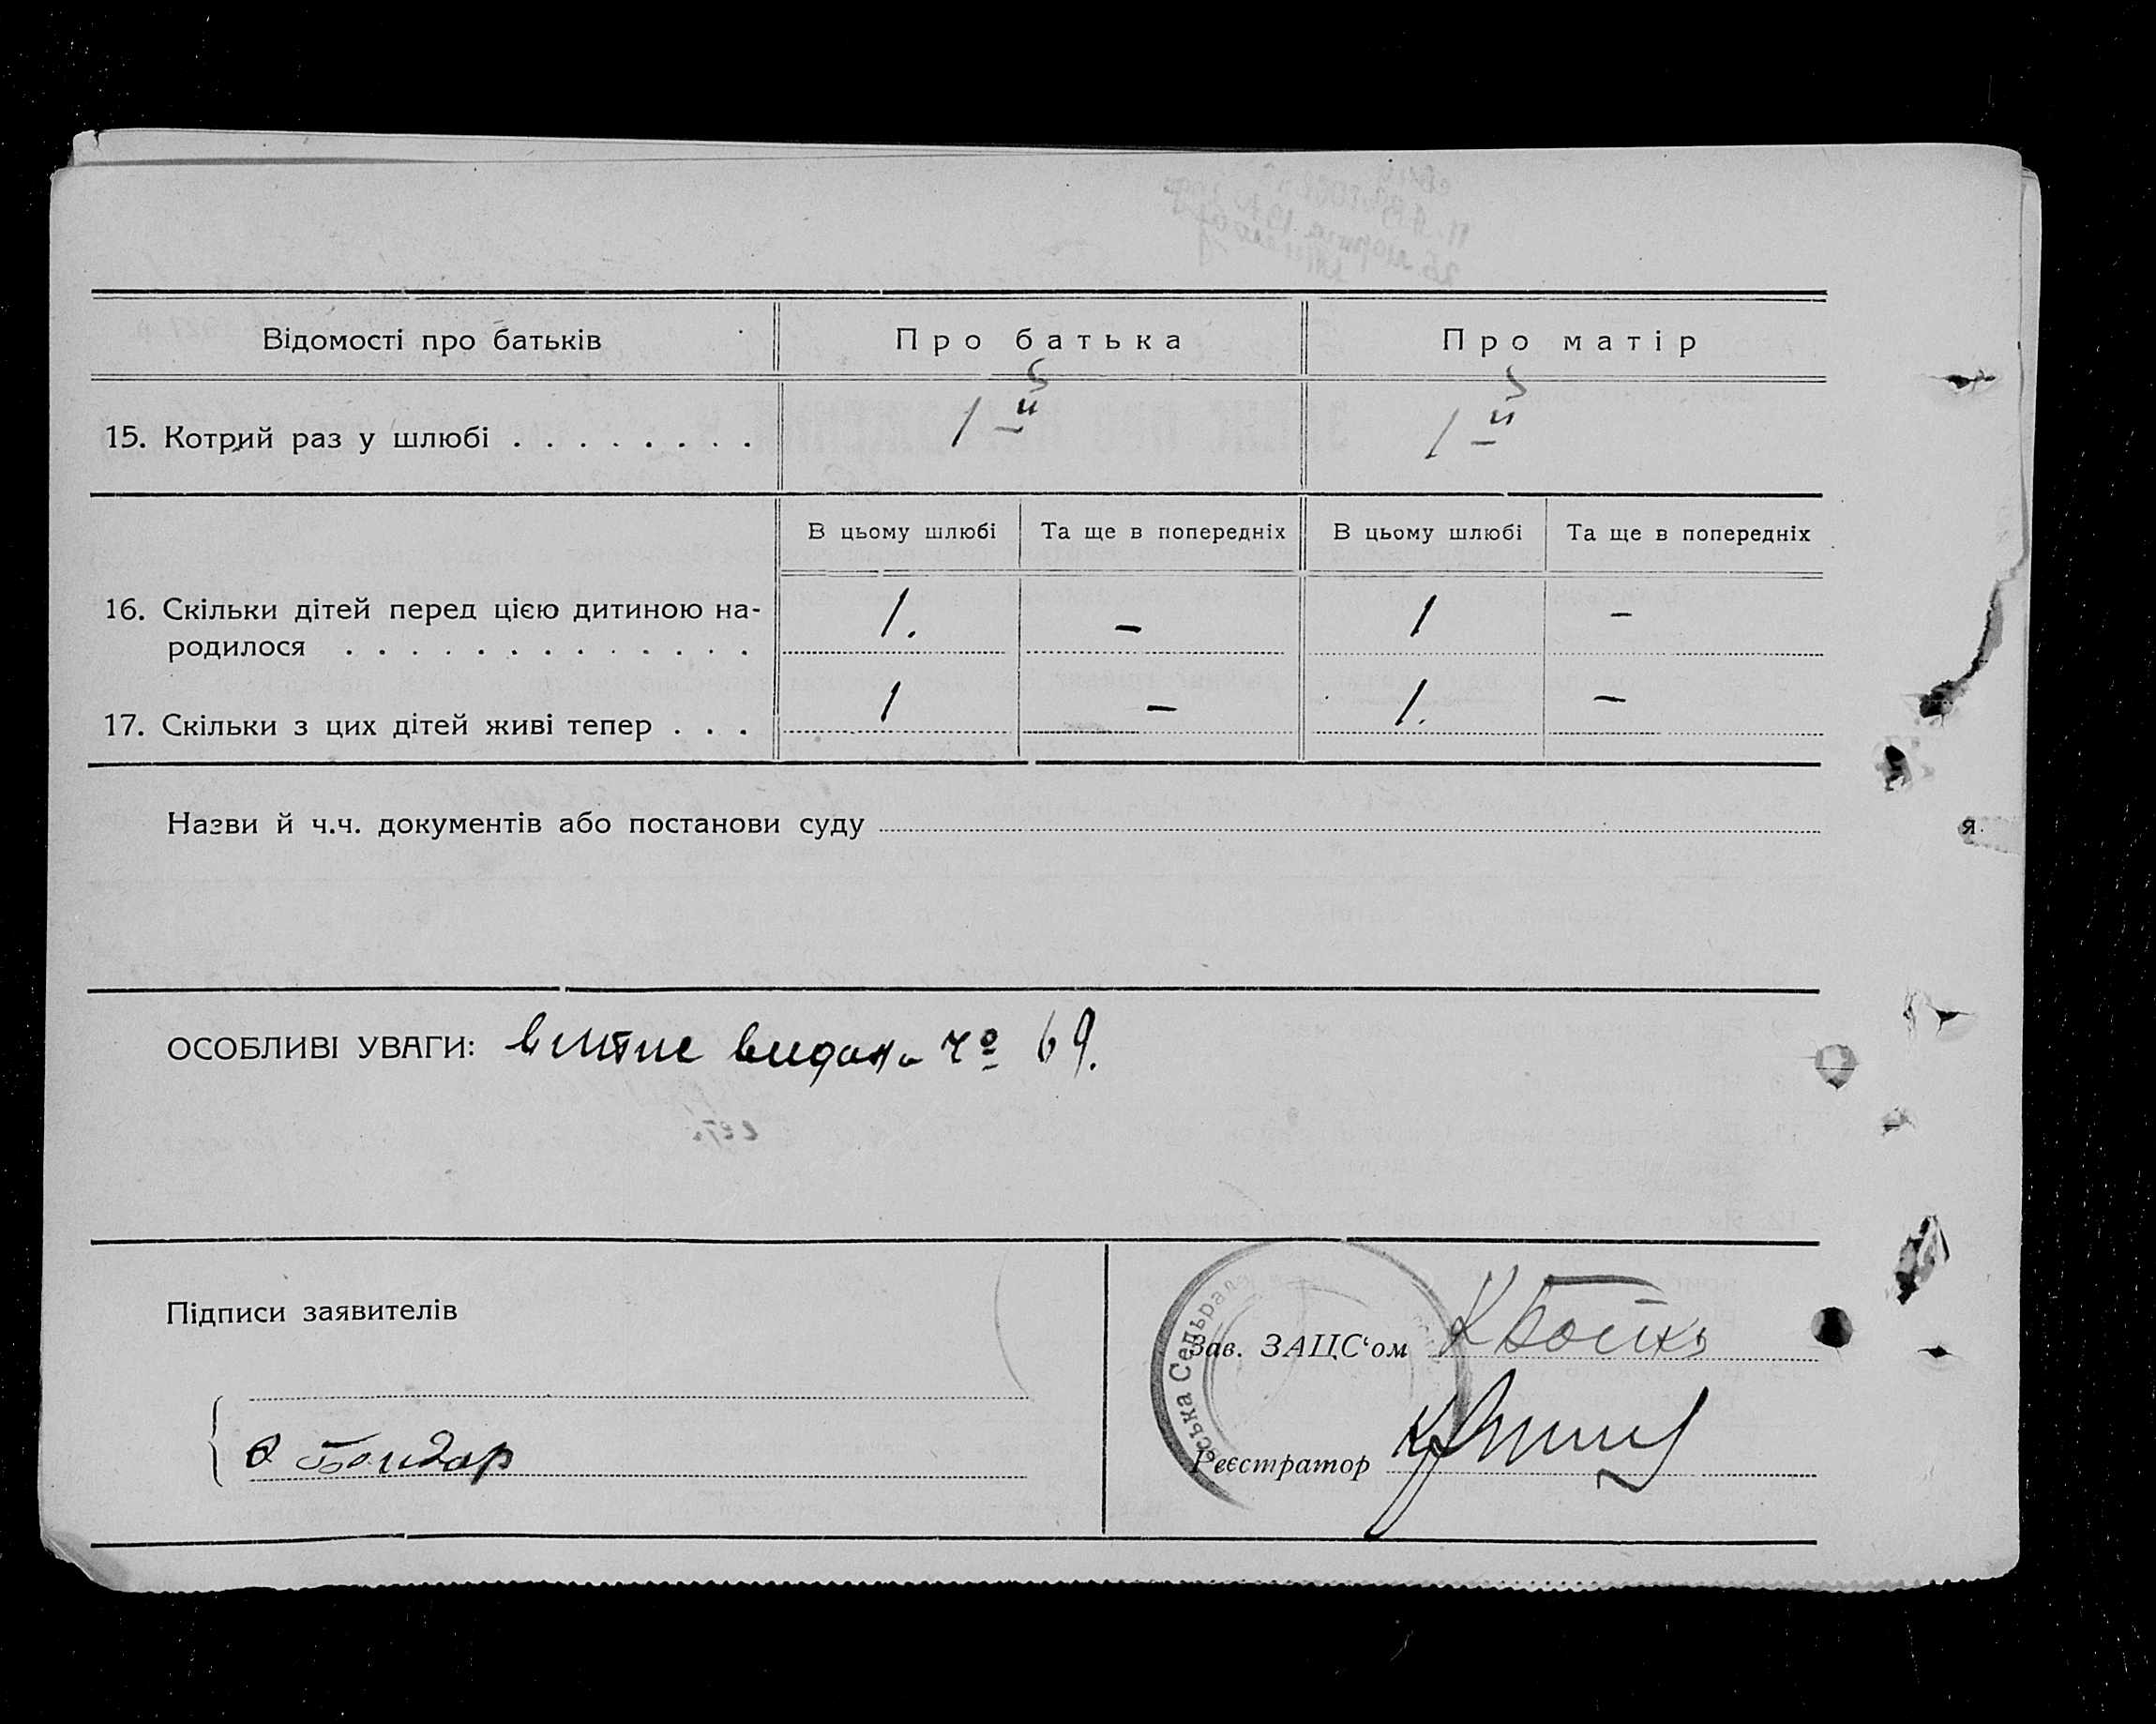 Відомості про батьків Про батька Про матір
15. Котрий раз у шлюбі . . . . . . . . 1й 1й
В цьому шлюбі Та ще в попередніх В цьому шлюбі Та ще в попередніх
16. Скільки дітей перед цією дитиною на-
родилося . . . . . . . . . . . . . 1. – 1 –
17. Скільки з цих дітей живі тепер . . . 1 – 1. –
Назви й ч.ч. документів або постанови суду
я
ОСОБЛИВІ УВАГИ: витяг видано Чо 69.
Підписи заявителів
Зав. ЗАЦС‘ом К Бойко
ська Сельрада
Бондар
Реєстратор